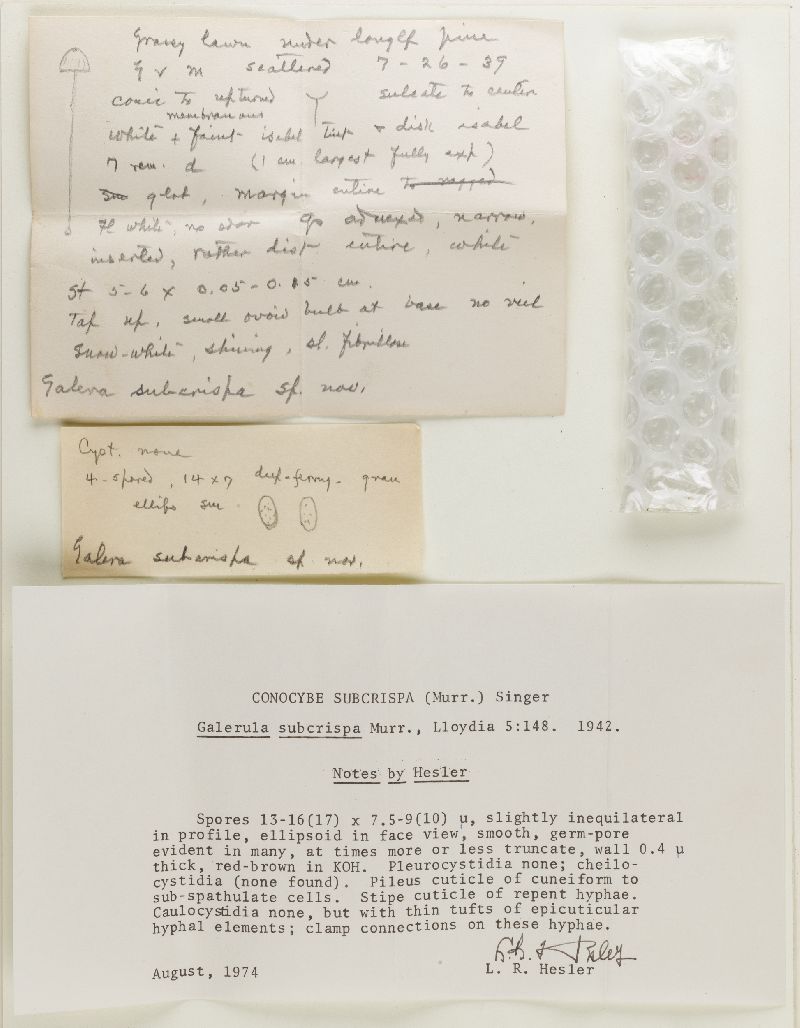 Grassy lawn under longlf pine
G v M scattered 7-26-39
conic to upturned sulcate to center
membranous
white + faint isabel tint & disk isabel
7 cm. d (1 cm largest fully exp)
glab, margin entire to ragged
fl white, no odor adnexed, narrow,
inserted, rather dist entire, white
St 5-6 x 0.05-0.15 cm.
Tap up, small ovoid bulb at base no veil
snow-white, shining, sl. fibrillose
Galera subcrispa sp. nov.
Cyst. none
4-spored, 14 x 7 gran
ellips sm
Galera subcrispa sp nov.
CONOCYBE SUBCRISPA (Murr.) Singer
Galerula subcrispa Murr., Lloydia 5:148. 1942.
Notes by Hesler
Spores 13-16(17) x 7.5-9(10) μ, slightly inequilateral
in profile, ellipsoid in face view, smooth, germ-pore
evident in many, at times more or less truncate, wall 0.4 μ
thick, red-brown in KOH. Pleurocystidia none; cheilo-
cystidia (none found). Pileus cuticle of cuneiform to
sub-spathulate cells. Stipe cuticle of repent hyphae.
Caulocystidia none, but with thin tufts of epicuticular
hyphal elements; clamp connections on these hyphae.
August, 1974 L. R. Hesler